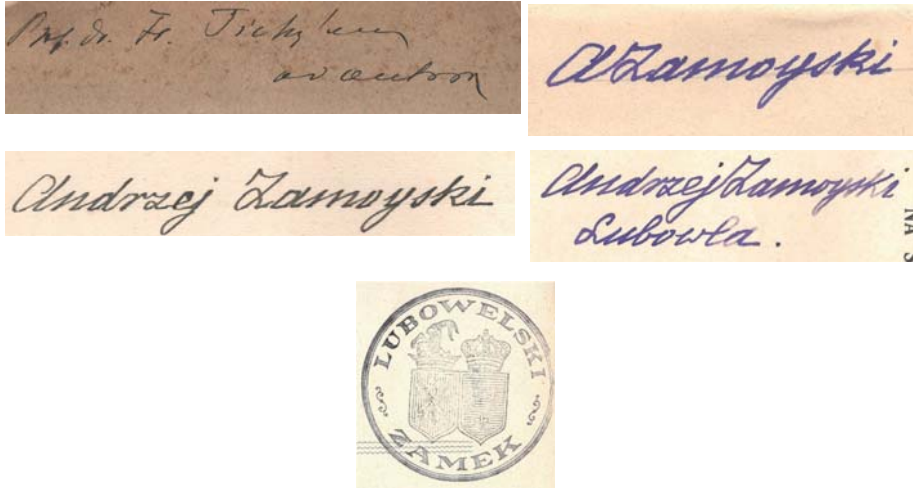 Prof. dr. Fr. Tichýmu
od autora
AZamoyski
Andrzej Zamoyski
Andrzej Zamoyski
Lubowla.
NA S
LUBOWELSKI
ZAMEK